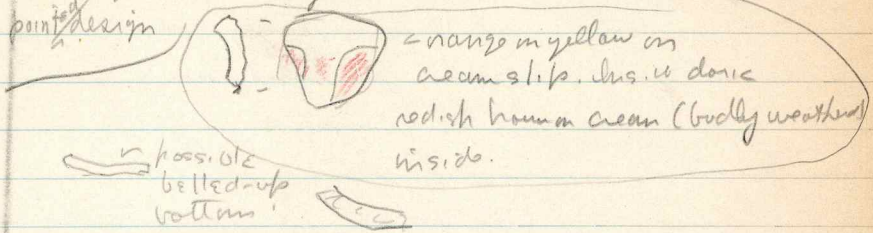 pointed design
- orange on yellow on
cream slip. this is dark
redish brown on cream (badly weathered)
inside.
possible
belled-up
bottom!